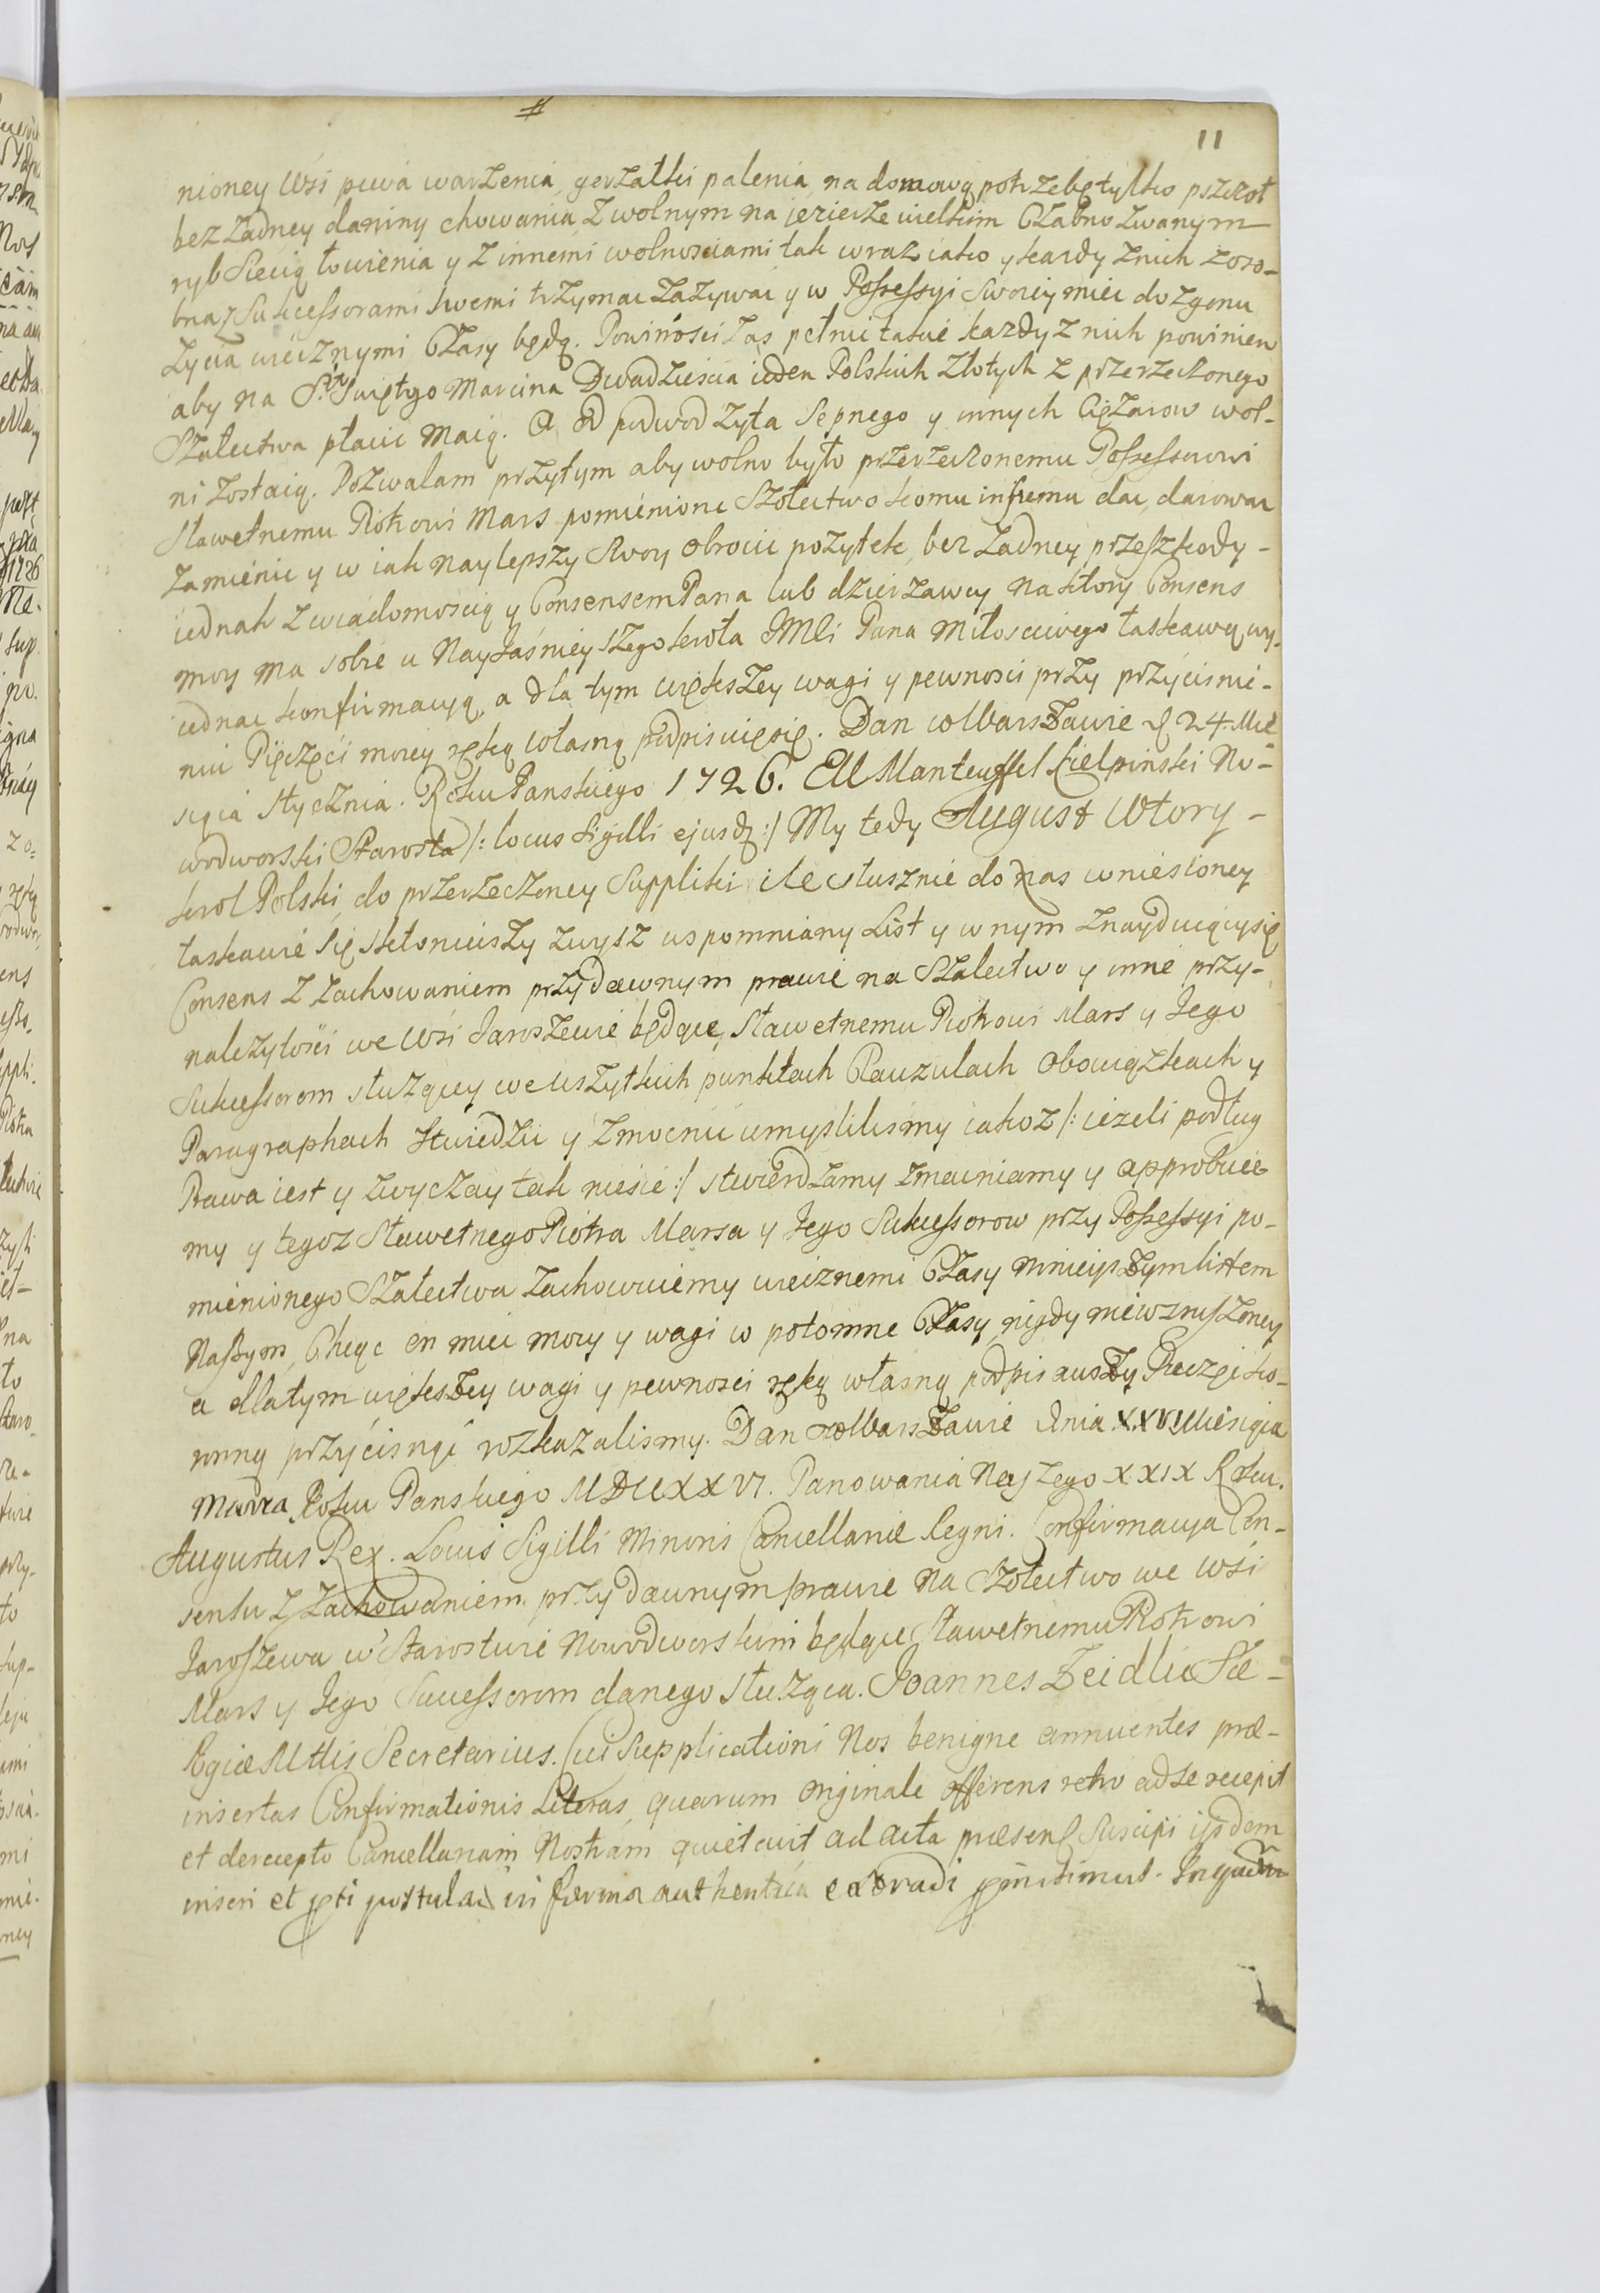 11
nioney Wśi piwa warzenia, gorzałki palenia, na domową potrzebę tylko pszczoł
bez żadney daniny chowania, z wolnym na jezierze wielkim zwanym
ryb Siecią łowienia y z innemi wolnosciami tak wraz iako y kazdy z nich zoso-
bna z Sukcessorami swemi trzymac zazywać y w Possessyi swoiey miec do zgonu
życia wiecznymi Czasy będą. Powinosci zas pełnic takie kazdy z nich powinien
aby na S. Swiętego Marcina Dwadziescia ieden Polskich Złotych z przerzeczonego
Szołectwa płacic maią. A od podwod zyta Sepnego y innych Ciężarow wol-
ni zostaią. Pozwalam przytym aby wolno było przerzeczonemu Possessorowi
Sławetnemu Piotrowi Mars pomienione Szołectwo komu inszemu dac, darowac
zamienic y w iak naylepszy swoy obrocic pozytek, bez żadney przeszkody -
iednak z wiadomoscią y Consensem Pana lub dzierzawcy na ktory Consens
moy ma sobie u Nayjaśnieyszego krola JMCi Pana Miłosciwego łaskawą wy-
iednac konfirmacyą, a dla tym większey wagi y pewnosci przy przycisnie-
niu Pięczęci moiey ręką własną podpisuięsię. Dan w Warszawie d 24. Mie
siąca stycznia. Roku Panskiego 1726. Manteuffel Kielpinski No-
wodworski Starosta /: locus Sigilli ejusd :/ My tedy August Wtory -
krol Polski, do przerzeczoney Suppliki ile słusznie do nas wniesioney
łaskawie się skłoniwszy zwysz wspomniany List y w nym znayduiącysię
Consens z zachowaniem przy dawnym prawie na Szołectwo y inne przy-
nalezytosci we Wśi Jaroszewie będące, Sławetnemu Piotrowi Mars y Jego
Sukcessorom służący we wszytkich punktach Clauzulach obowiązkach y
Paragraphach stwiedzic y zmocnic umyslilismy iakoz /: iezeli podług
Prawa iest y zwyczay tak niesie :/ stwierdzamy zmacniamy y approbuie
my y tegoz Sławetnego Piotra Marsa y Jego Sukcessorow przy Possessyi po-
mienionego Szołectwa zachowuiemy wieiznemi Czasy ninieyszym listem
Naszym, Chcąc on miec mocy y wagi w potomne Czasy nigdy niewzruszoney
a dlatym większey wagi y pewnosci ręką własną podpisawszy Pieczęć ko-
ronną przycisnąć rozkazalismy. Dan w Warszawie dnia XXVI Miesiąca
Marca Roku Panskiego MDCCXXVI. Panowania Naszego XXIX Roku.
Augustus Rex. Locus Sigilli Minoris Cancellariæ Regni. Confirmacya Con-
sensu z zachowaniem przy dawnym prawie na Szołectwo we wsi
Jaroszewa w Starostwie Nowodworskim będące Sławetnemu Piotrowi
Mars y Jego Successorom danego słuząca. Joannes Zeidlic Sæ-
Rgiæ Mttis Secretarius. Cui Supplicationi Nos benigne annuentes præ-
insertas Confirmationis Literas, quarum originale offerens retro ad se recepit
et de recepto Cancellariam Nostram quietavit ad acta præsen Suscipi iisdem
inseri et pti postulan in forma authentica extradi pmisimus. In quar